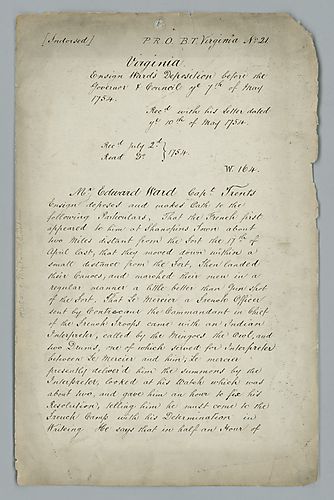 [Indorsed] P.R.O. B.T. Virginia No. 21.
Virginia
Ensign Ward's Deposition before the
Governor & Council ye 7th of May
1754.
Recd with his Letter dated
ye 10th of May 1754.
Recd July 2d
Read Do } 1754.
W. 164.
Mr. Edward Ward Capt. Trents
Ensign deposes and makes Oath to the
following Particulars, That the French first
appeared to him at Shanopins Town about
two Miles distant from the Fort the 17th of
April last, that they moved down within a
small distance from the Fort, Then landed
their Canoes, and marched their men in a
regular manner a little better than Gun shot
of the Fort. That Le Mercier a French Officer
sent by Contrecoeur the Commandant in Chief
of the French Troops came with an Indian
Interpreter, called by the Mingoes the Owl, and
two Drums, one of which served for Interpreter
between Le Mercier and him; Le mercier
presently deliver'd him the summons by the
Interpreter, looked at his Watch which was
about two, and gave him an hour to fix his
Resolution, telling him he must come to the
French Camp with his Determination in
Writeing. He says that in half an Hour of